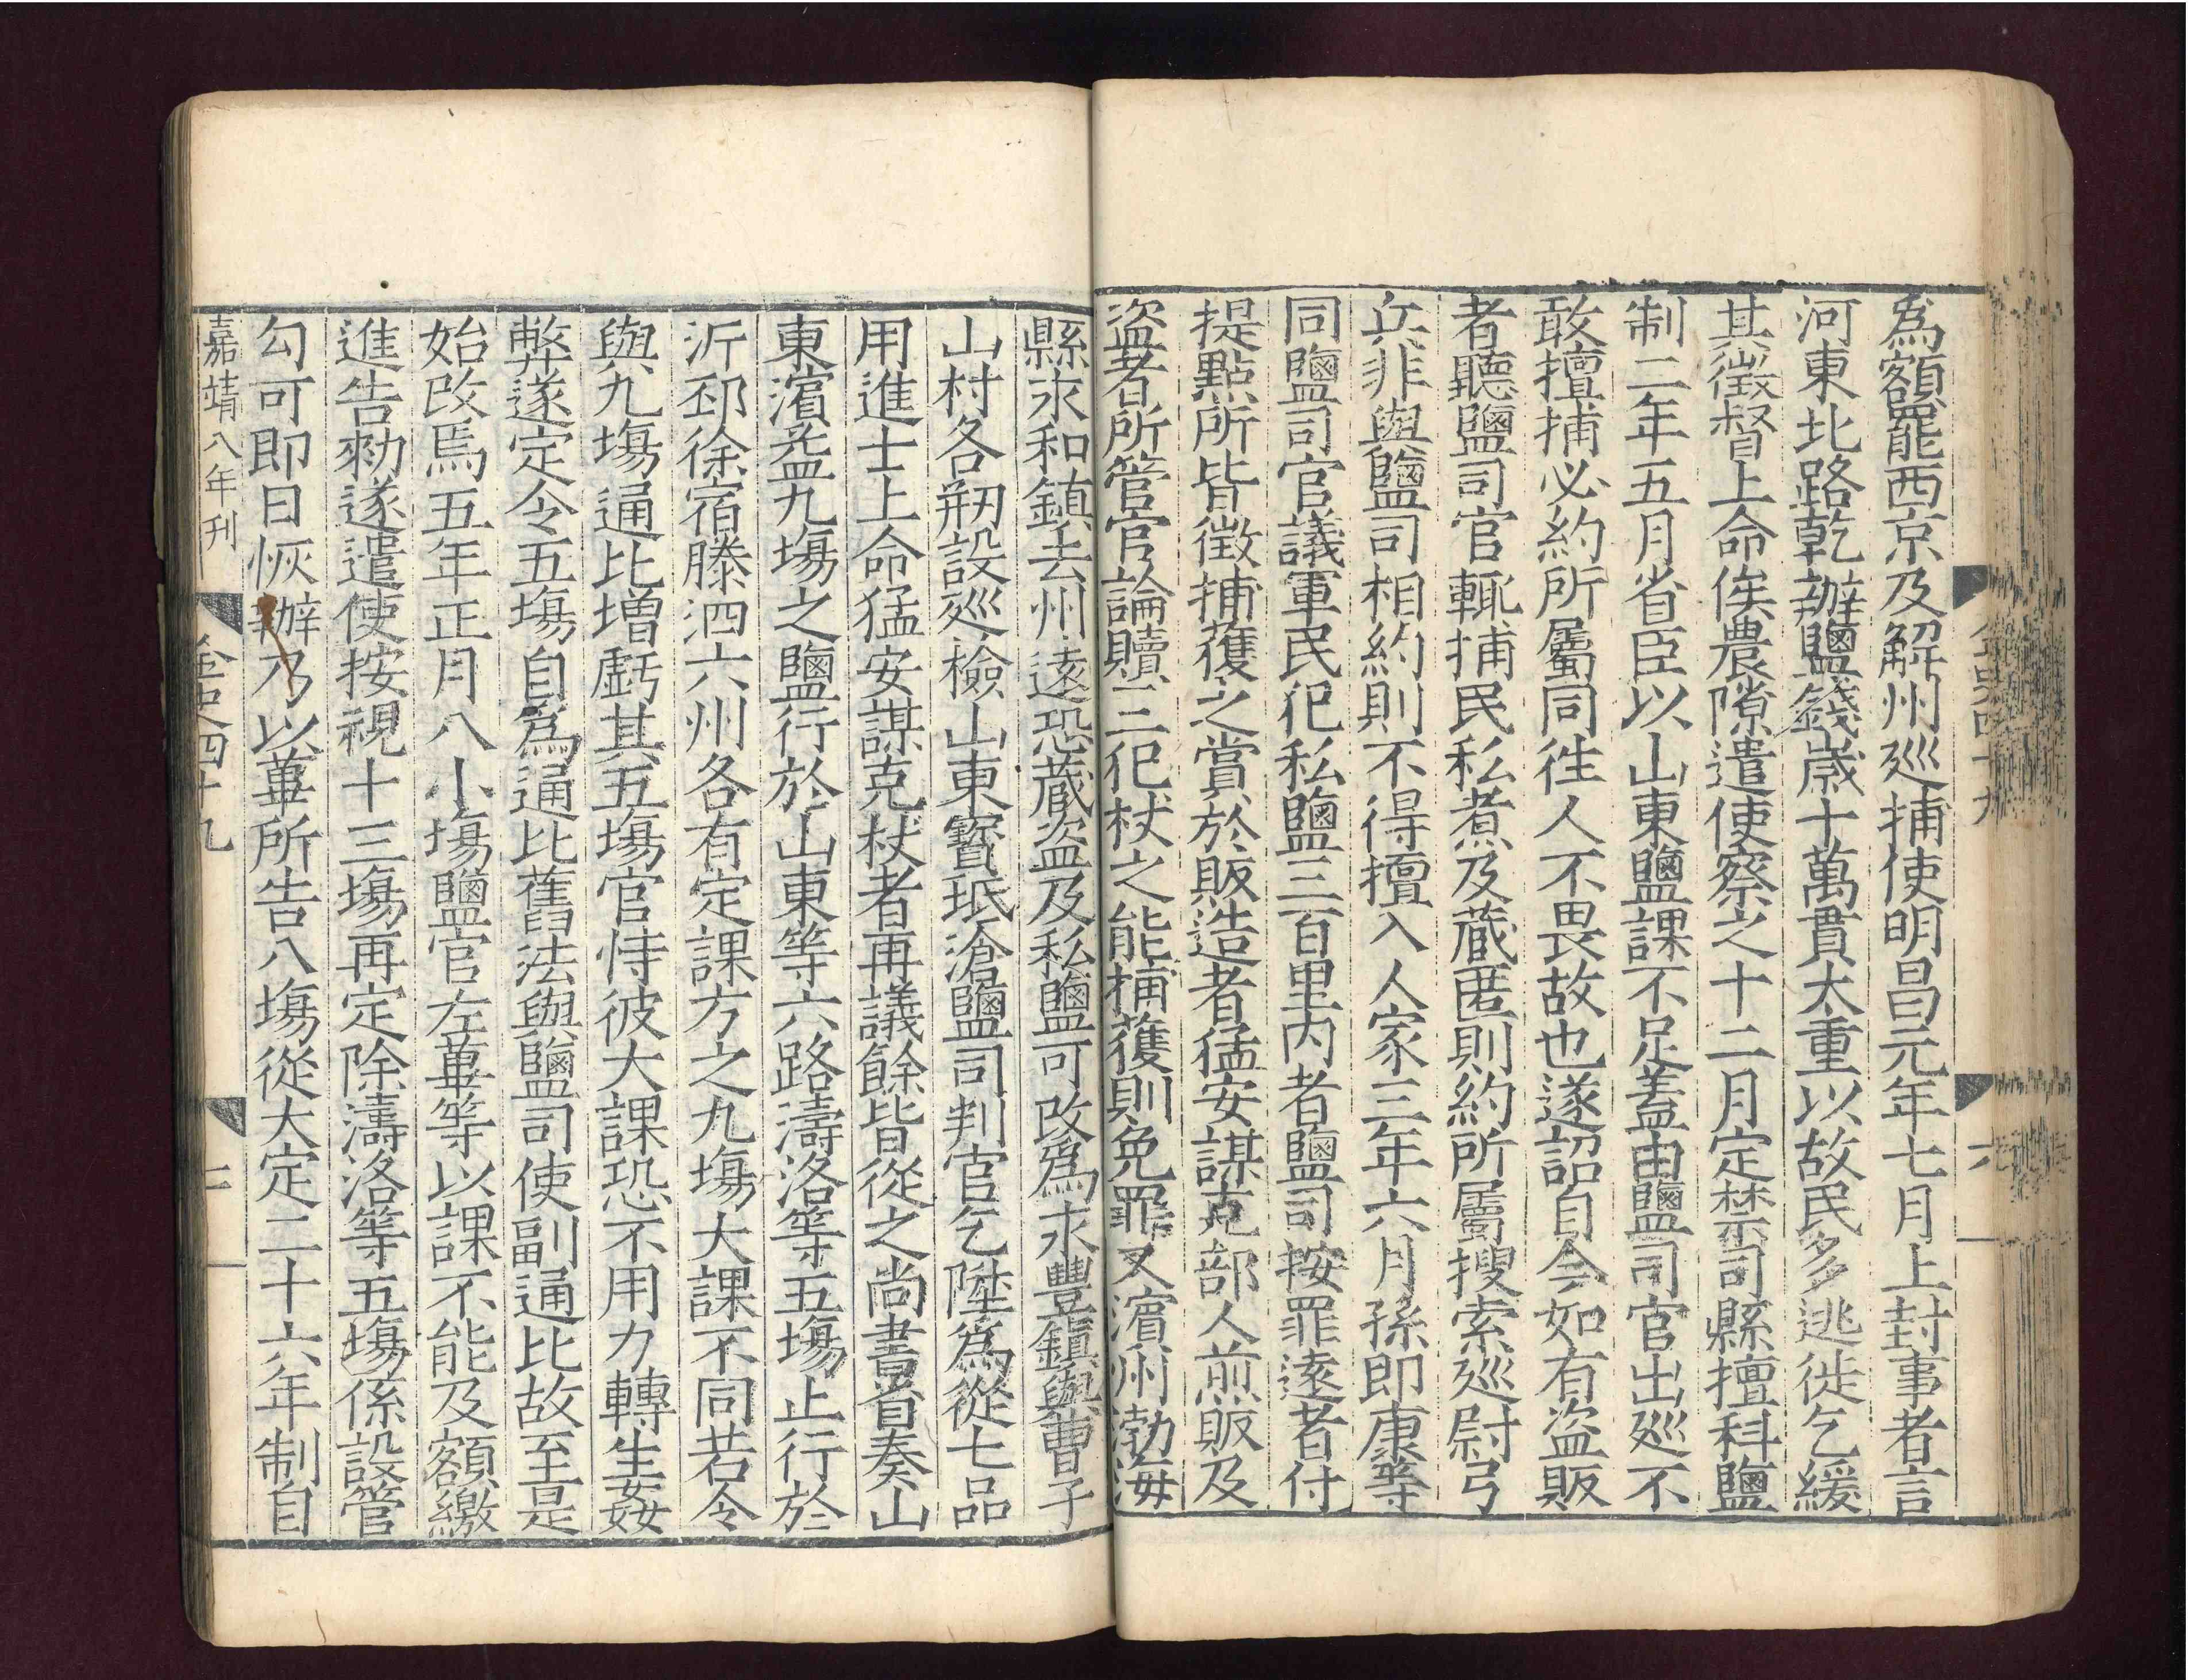 爲額罷西京及解州廵捕使明昌元年七月上封事者言
河東北路乾辦鹽錢歳十萬貫太重以故民多逃徙乞緩
其徵督上命俟農隙遣使察之十二月定禁司縣擅科鹽
制二年五月省臣以山東鹽課不足蓋由鹽司官出廵不
敢擅捕必約所屬同徃人不畏故也遂詔自今如有盗販
者聽鹽司官輒捕民私煮及蔵匿則約所屬搜索廵尉弓
兵非與鹽司相約則不得擅入人家三年六月孫即康等
同鹽司官議軍民犯私鹽三百里内者鹽司按罪逺者付
提點所皆徴捕獲之賞於販造者猛安謀克部人煎販及
盗者所管官論贖三犯杖之能捕獲則免罪又濱州渤海
縣永和鎮去州逺恐蔵盗及私鹽可改爲永豐鎮與曹子
山村各剏設廵檢山東寳坻滄鹽司判官乞陞爲從七品
用進士上命猛安謀克杖者再議餘皆從之尚書省奏山
東濱益九塲之鹽行於山東等六路濤洛等五塲止行於
沂邳徐宿滕泗六州各有定課方之九塲大課不同若令
與九塲通比增虧其五塲官恃彼大課恐不用力轉生姦
弊遂定令五塲自爲通比舊法與鹽司使副通比故至是
始改焉五年正月八小塲鹽官左蓽等以課不能及額繳
進告勑遂遣使按視十三塲再定除濤洛等五塲係設管
勾可即日恢辦乃以蓽所告八塲從大定二十六年制自
嘉靖八年刊
金史四十九